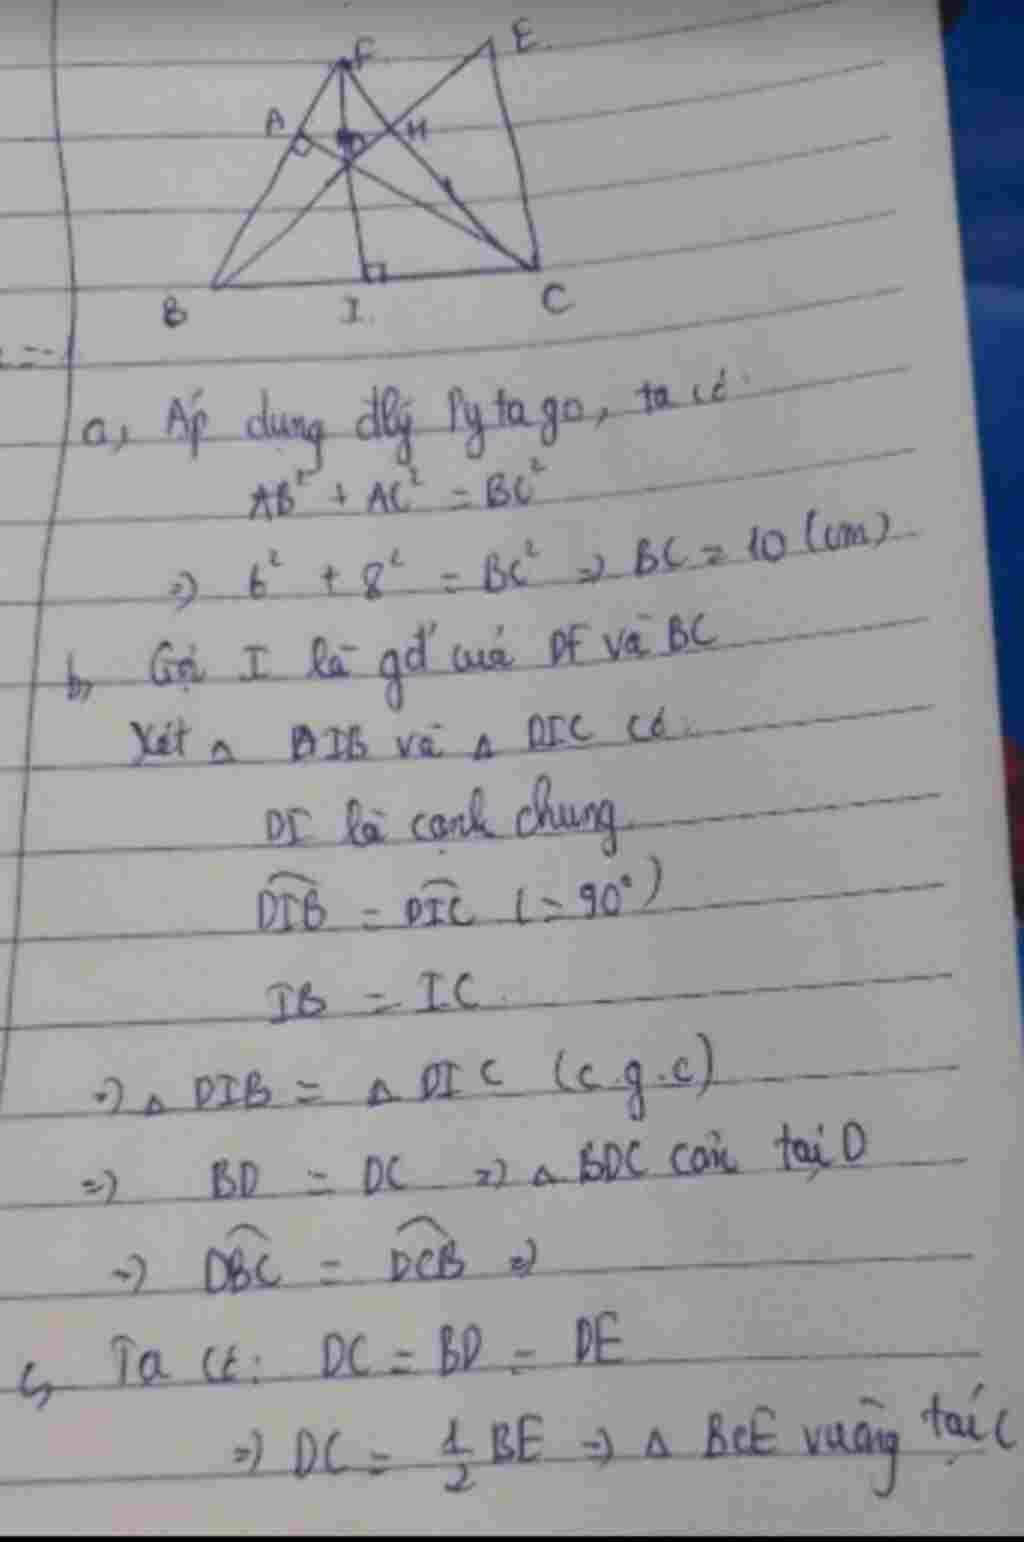 F
E
A
D
H
B
I
C
a, Áp dụng đlý Pytago, ta có:
AB² + AC² = BC²
=) 6² + 8² = BC² =) BC = 10 (cm)
b, Gọi I là gđ của DF và BC
Xét △ DIB và △ DIC có:
DI là cạnh chung
DIB = DIC (= 90°)
IB = IC
=) △ DIB = △ DIC (c.g.c)
=) BD = DC =) △ BDC cân tại D
=) DBC = DCB =)
c, Ta có: DC = BD = DE
=) DC = 1/2 BE =) △ BCE vuông tại C